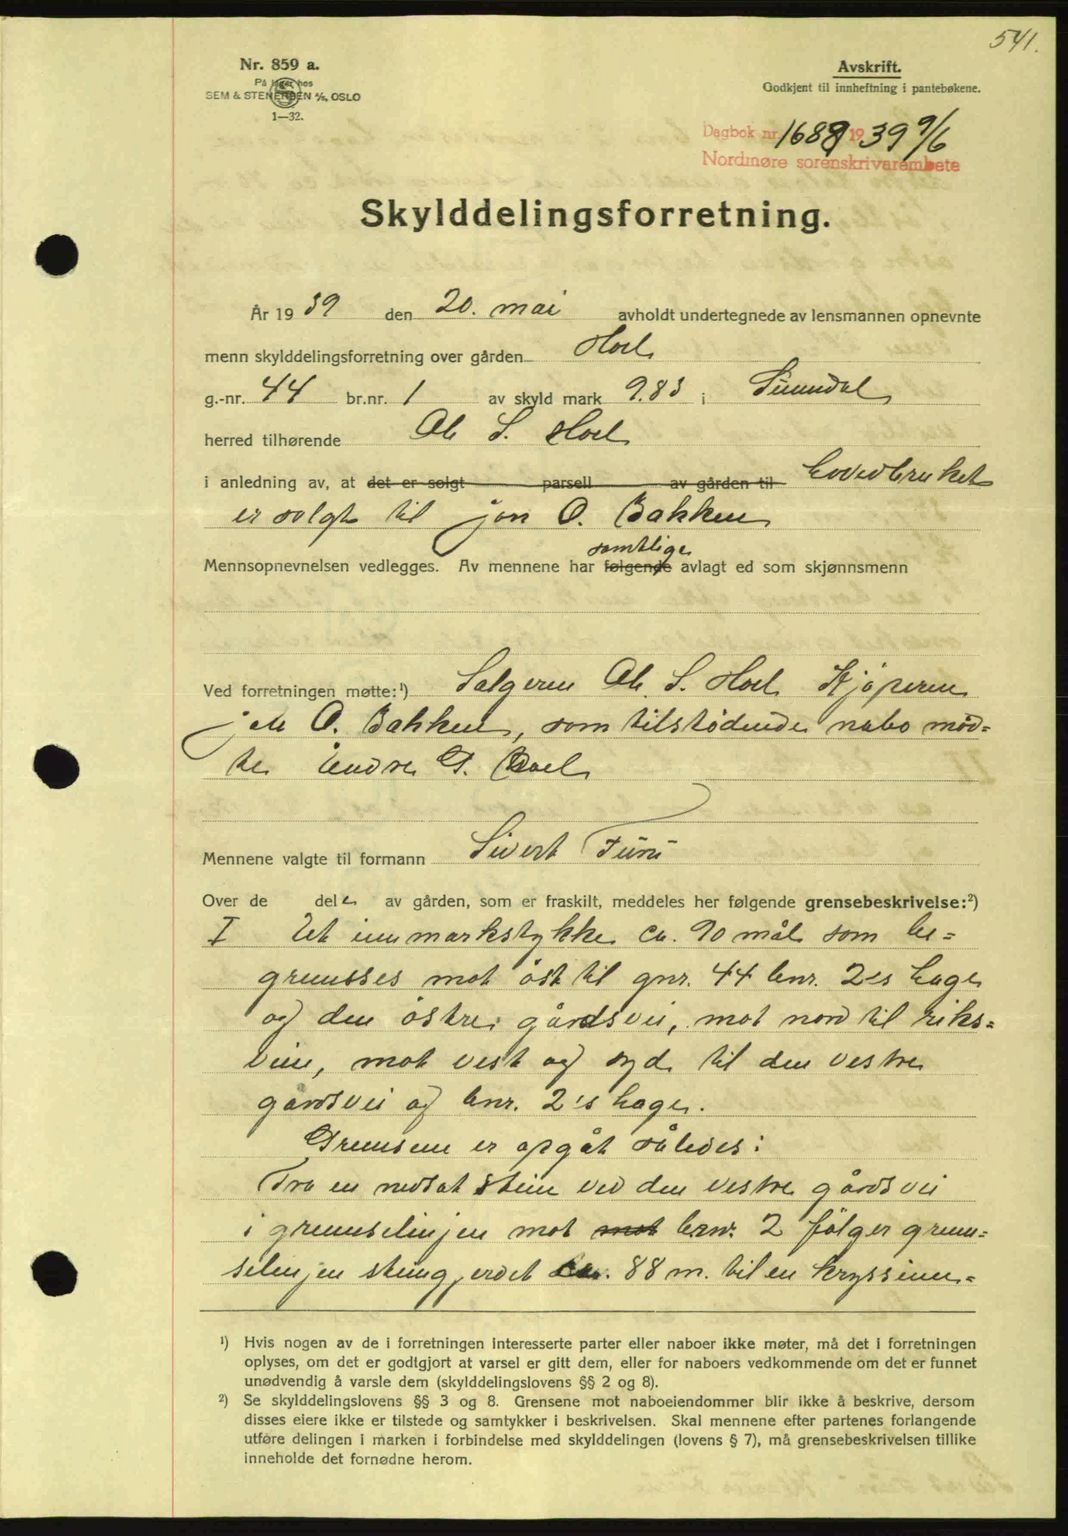 541.
Nr. 859 a.
På lager hos
SEM & STENERSEN A/S, OSLO
1—32.
Avskrift.
Godkjent til innheftning i pantebøkene.
Dagbok nr. 1688 1939 9/6
Nordmøre sorenskrivarembete
Skylddelingsforretning.
År 1939 den 20. mai avholdt undertegnede av lensmannen opnevnte
menn skylddelingsforretning over gården Hoel
g.-nr. 44 br.nr. 1 av skyld mark 9.83 i Sunndal
herred tilhørende Ole S. Hoel
i anledning av, at det er solgt parsell av gården til hovedbruket
er solgt til Jon O. Bakken
samtlige
Mennsopnevnelsen vedlegges. Av mennene har følgende avlagt ed som skjønnsmenn
Ved forretningen møtte:¹) Selgeren Ole S. Hoel Kjøperen
Jon O. Bakken, som tilstødende nabo mød=
te Endre G. Hoel
Mennene valgte til formann Sivert Furu
Over de dele av gården, som er fraskilt, meddeles her følgende grensebeskrivelse:²)
I Et innmarkstykke ca. 90 mål som be=
grensses mot øst til gnr. 44 bnr. 2's hage
og den østre gårdsvei, mot nord til riks=
veien, mot vest og syd til den vestre
gårdsvei og bnr. 2's hage.
Grensene er opgåt således:
Fra en nedsat stein ved den vestre gårdsvei
i grenselinjen mot mot bnr. 2 følger grens=
selinjen steingjerdet ca. 88 m. til en kryss inn=
¹) Hvis nogen av de i forretningen interesserte parter eller naboer ikke møter, må det i forretningen
oplyses, om det er godtgjort at varsel er gitt dem, eller for naboers vedkommende om det er funnet
unødvendig å varsle dem (skylddelingslovens §§ 2 og 8).
²) Se skylddelingslovens §§ 3 og 8. Grensene mot naboeiendommer blir ikke å beskrive, dersom
disses eiere ikke er tilstede og samtykker i beskrivelsen. Skal mennene efter partenes forlangende
utføre delingen i marken i forbindelse med skylddelingen (lovens § 7), må grensebeskrivelsen tillike
inneholde det fornødne herom.